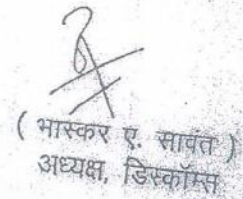 ( भास्कर ए. सावंत )
अध्यक्ष, डिस्कॉम्स